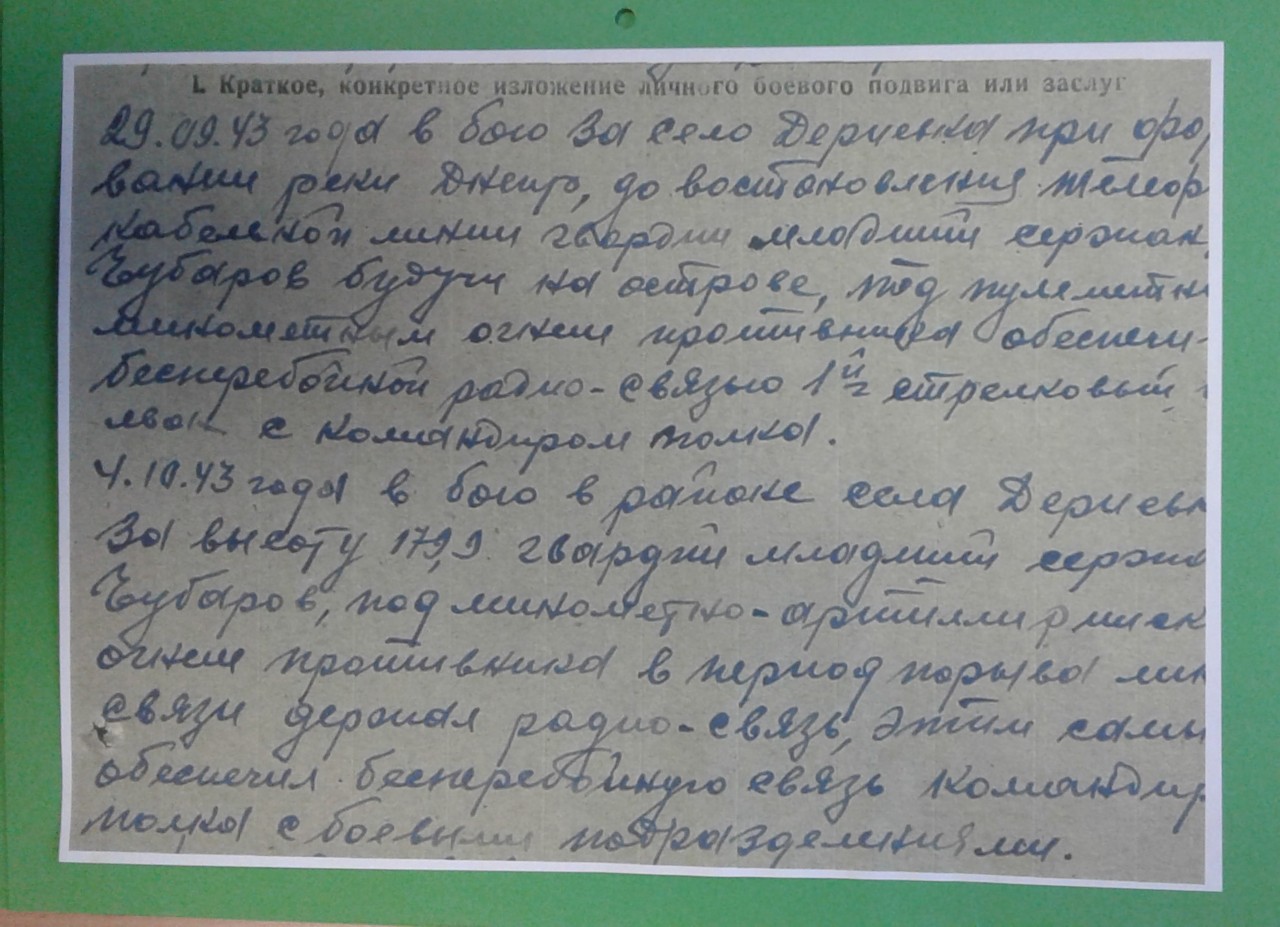 I. Краткое, конкретное изложение личного боевого подвига или заслуг
29.09.43 года в бою за село Дериевка при фо
вании реки Днепр, до востановления
кабельной линии гвардии младший сержан
Чубаров будучи на острове, под пулеметн
минометным огнем противника обеспечи-
бесперебойной радио-связью 1й стрелковый
с командиром полка.
4.10.43 года в бою в районе села Дериевк
За высоту 179,9 гвардии младший сержа
Чубаров, под минометно-артиллириск
огнем противника в период порыва лин
связи держал радио-связь, этим самы
обеспечил бесперебойную связь командир
полка с боевыми подразделениями.